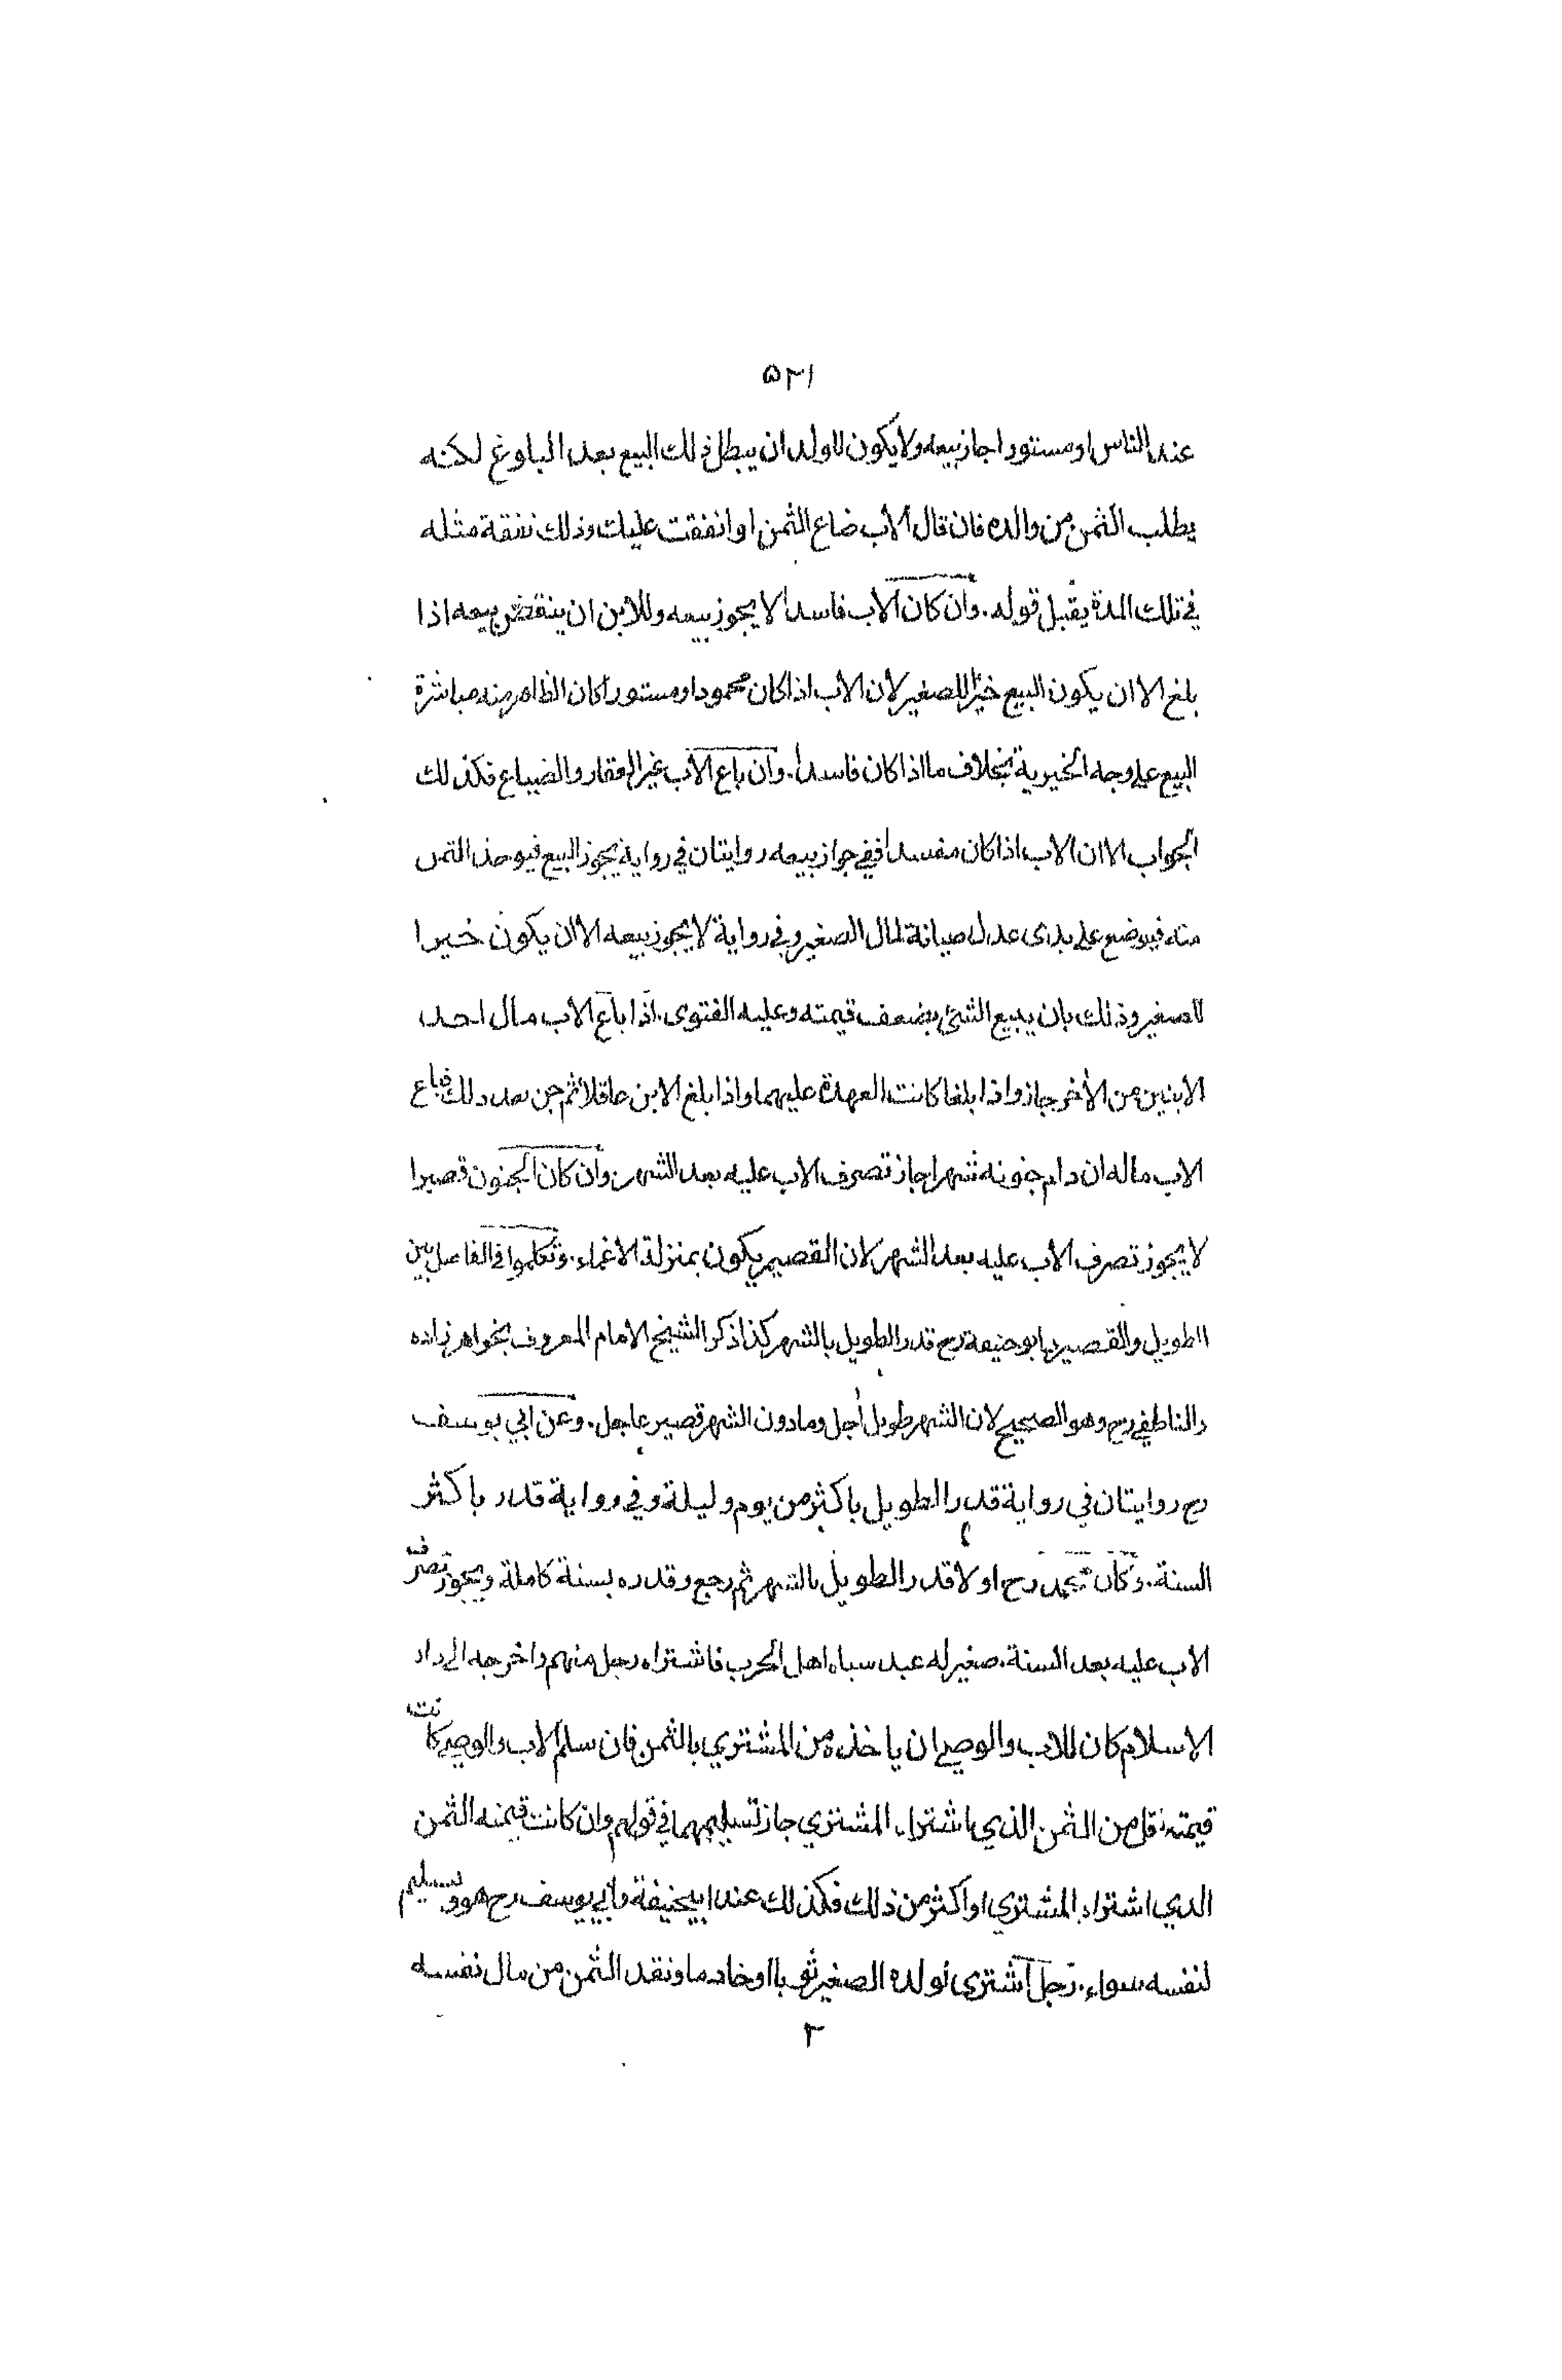 ۵۲۱
عند الناس او مستورا جاز بيعه ولا يكون للولد ان يبطل ذلك البيع بعد البلوغ لكنه
يطلب الثمن من والده فان قال الاب ضاع الثمن او انفقت عليك وذلك نفقة مثله
في تلك المدة يقبل قوله. وان كان الاب فاسدا لا يجوز بيعه وللابن ان ينقض بيعه اذا
بلغ الا ان يكون البيع خيرًا للصغير لان الاب اذا كان محمودا او مستورا كان الظاهر منه مباشرة
البيع على وجه الخيرية بخلاف ما اذا كان فاسدا. وان باع الاب غير العقار والضياع فكذلك
الجواب الا ان الاب اذا كان مفسدا ففي جواز بيعه روايتان في رواية يجوز البيع فيوخذ الثمن
منه فيوضع على يدى عدل صيانة لمال الصغير وفي رواية لا يجوز بيعه الا ان يكون خيرا
للصغير وذلك بان يبيع الشئ بضعف قيمته وعليه الفتوى. اذا باع الاب مال احد
الابنين من الآخر جاز واذا بلغا كانت العهدة عليهما واذا بلغ الابن عاقلا ثم جن بعد ذلك فباع
الاب ماله ان دام جنونه شهرا جاز تصرف الاب عليه بعد الشهر. وان كان الجنون قصيرا
لا يجوز تصرف الاب عليه بعد الشهر لان القصير يكون بمنزلة الاغماء. وتكلموا في الفاصل بين
الطويل والقصير ابو حنيفة رح قدر الطويل بالشهر كذا ذكر الشيخ الامام المعروف بخواهر زاده
والناطفي رح وهو الصحيح لان الشهر طويل آجل وما دون الشهر قصير عاجل. وعن ابي يوسف
رح روايتان في رواية قدر الطويل باكثر من يوم وليلة وفي رواية قدر باكثر
السنة. وكان محمد رح اولا قدر الطويل بالشهر ثم رجع وقدره بسنة كاملة ويجوز تصرف
الاب عليه بعد السنة. صغير له عبد سباه اهل الحرب فاشتراه رجل منهم واخرجه الى دار
الاسلام كان للاب والوصي ان ياخذه من المشتري بالثمن فان سلم الاب والوصي كانت
قيمته اقل من الثمن الذي اشتراه المشتري جاز تسليمهما في قولهم وان كانت قيمته الثمن
الذي اشتراه المشتري او اكثر من ذلك فكذلك عند ابيحنيفة وابي يوسف رح هو وتسليم
لنفسه سواء. رجل اشترى لولده الصغير ثوبا او خادما ونقد الثمن من مال نفسه
۲